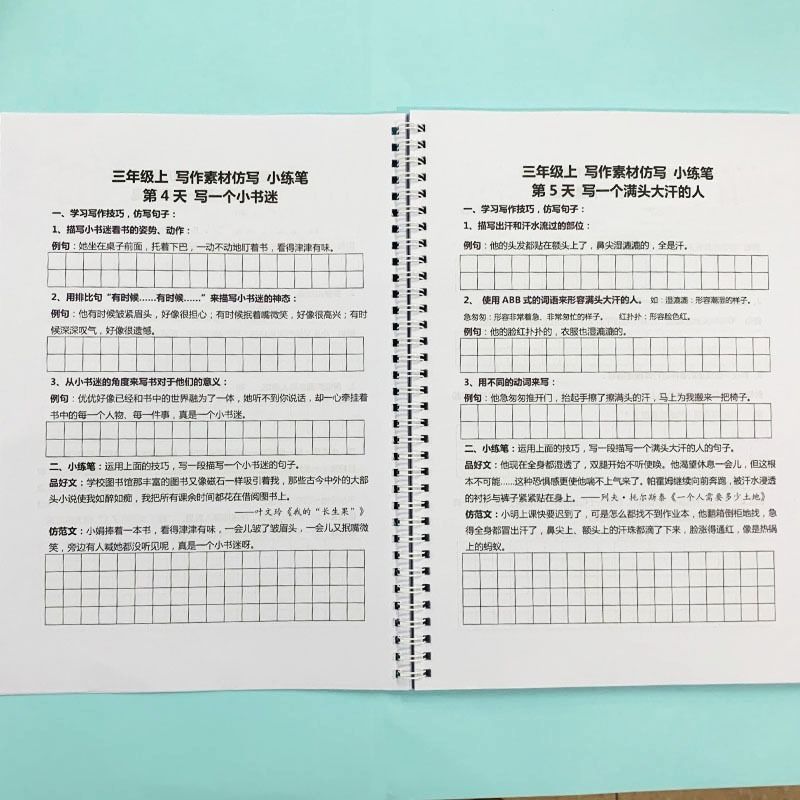 三年级上 写作素材仿写 小练笔
第 4 天 写一个小书迷
一、学习写作技巧，仿写句子：
1、描写小书迷看书的姿势、动作：
例句：她坐在桌子前面，托着下巴，一动不动地盯着书，看得津津有味。
2、用排比句“有时候……有时候……”来描写小书迷的神态：
例句：他有时候皱紧眉头，好像很担心；有时候抿着嘴微笑，好像很高兴；有时
候深深叹气，好像很遗憾。
3、从小书迷的角度来写书对于他们的意义：
例句：优优好像已经和书中的世界融为了一体，她听不到你说话，却一心牵挂着
书中的每一个人物、每一件事，真是一个小书迷。
二、小练笔：运用上面的技巧，写一段描写一个小书迷的句子。
品好文：学校图书馆那丰富的图书又像磁石一样吸引着我，那些古今中外的大部
头小说使我如醉如痴，我把所有课余时间都花在借阅图书上。
——叶文玲《我的“长生果”》
仿范文：小娟捧着一本书，看得津津有味，一会儿皱了皱眉头，一会儿又抿嘴微
笑，旁边有人喊她都没听见呢，真是一个小书迷呀。
三年级上 写作素材仿写 小练笔
第 5 天 写一个满头大汗的人
一、学习写作技巧，仿写句子：
1、描写出汗和汗水流过的部位：
例句：他的头发都贴在额头上了，鼻尖湿漉漉的，全是汗。
2、 使用 ABB 式的词语来形容满头大汗的人。 如：湿漉漉：形容潮湿的样子。
急匆匆：形容非常着急、非常匆忙的样子。 红扑扑：形容脸色红。
例句：他的脸红扑扑的，衣服也湿漉漉的。
3、用不同的动词来写：
例句：他急匆匆推开门，抬起手擦了擦满头的汗，马上为我搬来一把椅子。
二、小练笔：运用上面的技巧，写一段描写一个满头大汗的人的句子。
品好文：他现在全身都湿透了，双腿开始不听使唤。他渴望休息一会儿，但这根
本不可能……这种恐惧感更使他喘不上气来了。帕霍姆继续向前奔跑，被汗水浸透
的衬衫与裤子紧紧贴在身上。——列夫·托尔斯泰《一个人需要多少土地》
仿范文：小明上课快要迟到了，可是怎么都找不到作业本，他翻箱倒柜地找，急
得全身都冒出汗了，鼻尖上、额头上的汗珠都滴了下来，脸涨得通红，像是热锅
上的蚂蚁。